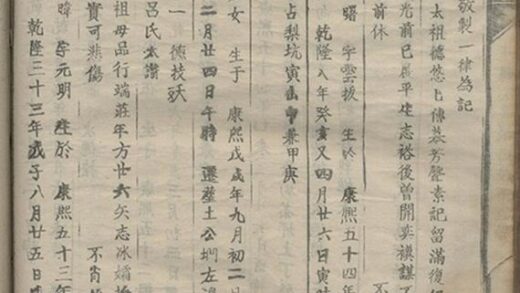 敬製一律為記
太祖德悠上傳慕芳聲素記留滿復
光前已展平生志裕後曾開奕禩謀不
前休
曙 字雲拔 生於 康熙五十四年
乾隆八年癸亥又四月廿六日寅時
占梨坑寅山申兼甲庚
女 生于 康熙戊戌年九月初二日
二月廿四日午時 遷塟土公坰左邊
一 德技玅
呂氏太讚
祖母品行端莊年方廿六矢志冰
實可悲傷 不肖
暐 字元明 生於 康熙五十三年
乾隆三十三年戊子八月廿五日